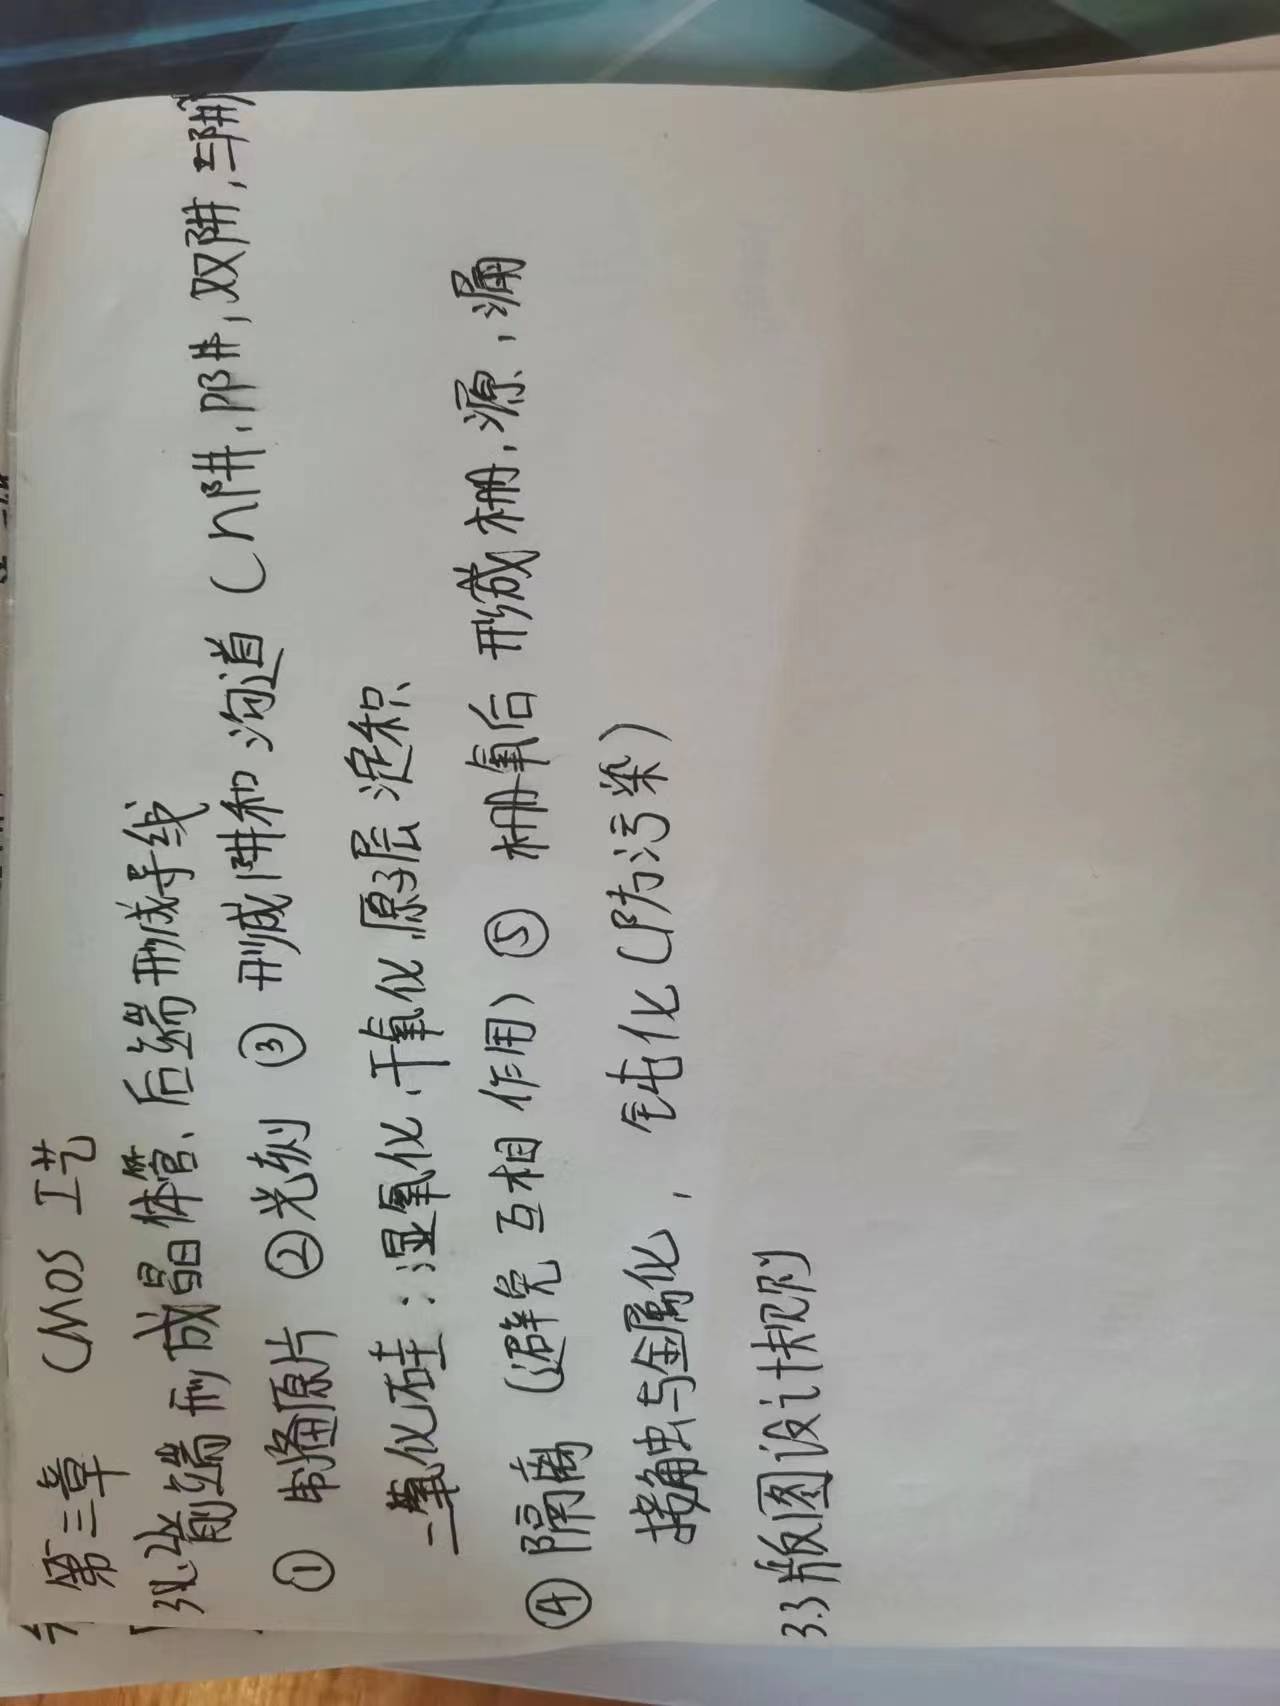 第三章 CMOS 工艺
3.1.2 前端形成晶体管、后端形成导线
① 制备原片 ②光刻 ③ 形成阱和沟道 (n阱,p阱,双阱,三阱)
二氧化硅：湿氧化、干氧化、原子层淀积
④ 隔离 (避免互相作用) ⑤ 栅氧后 形成栅,源,漏
接触与金属化, 钝化(防污染)
3.3 版图设计规则